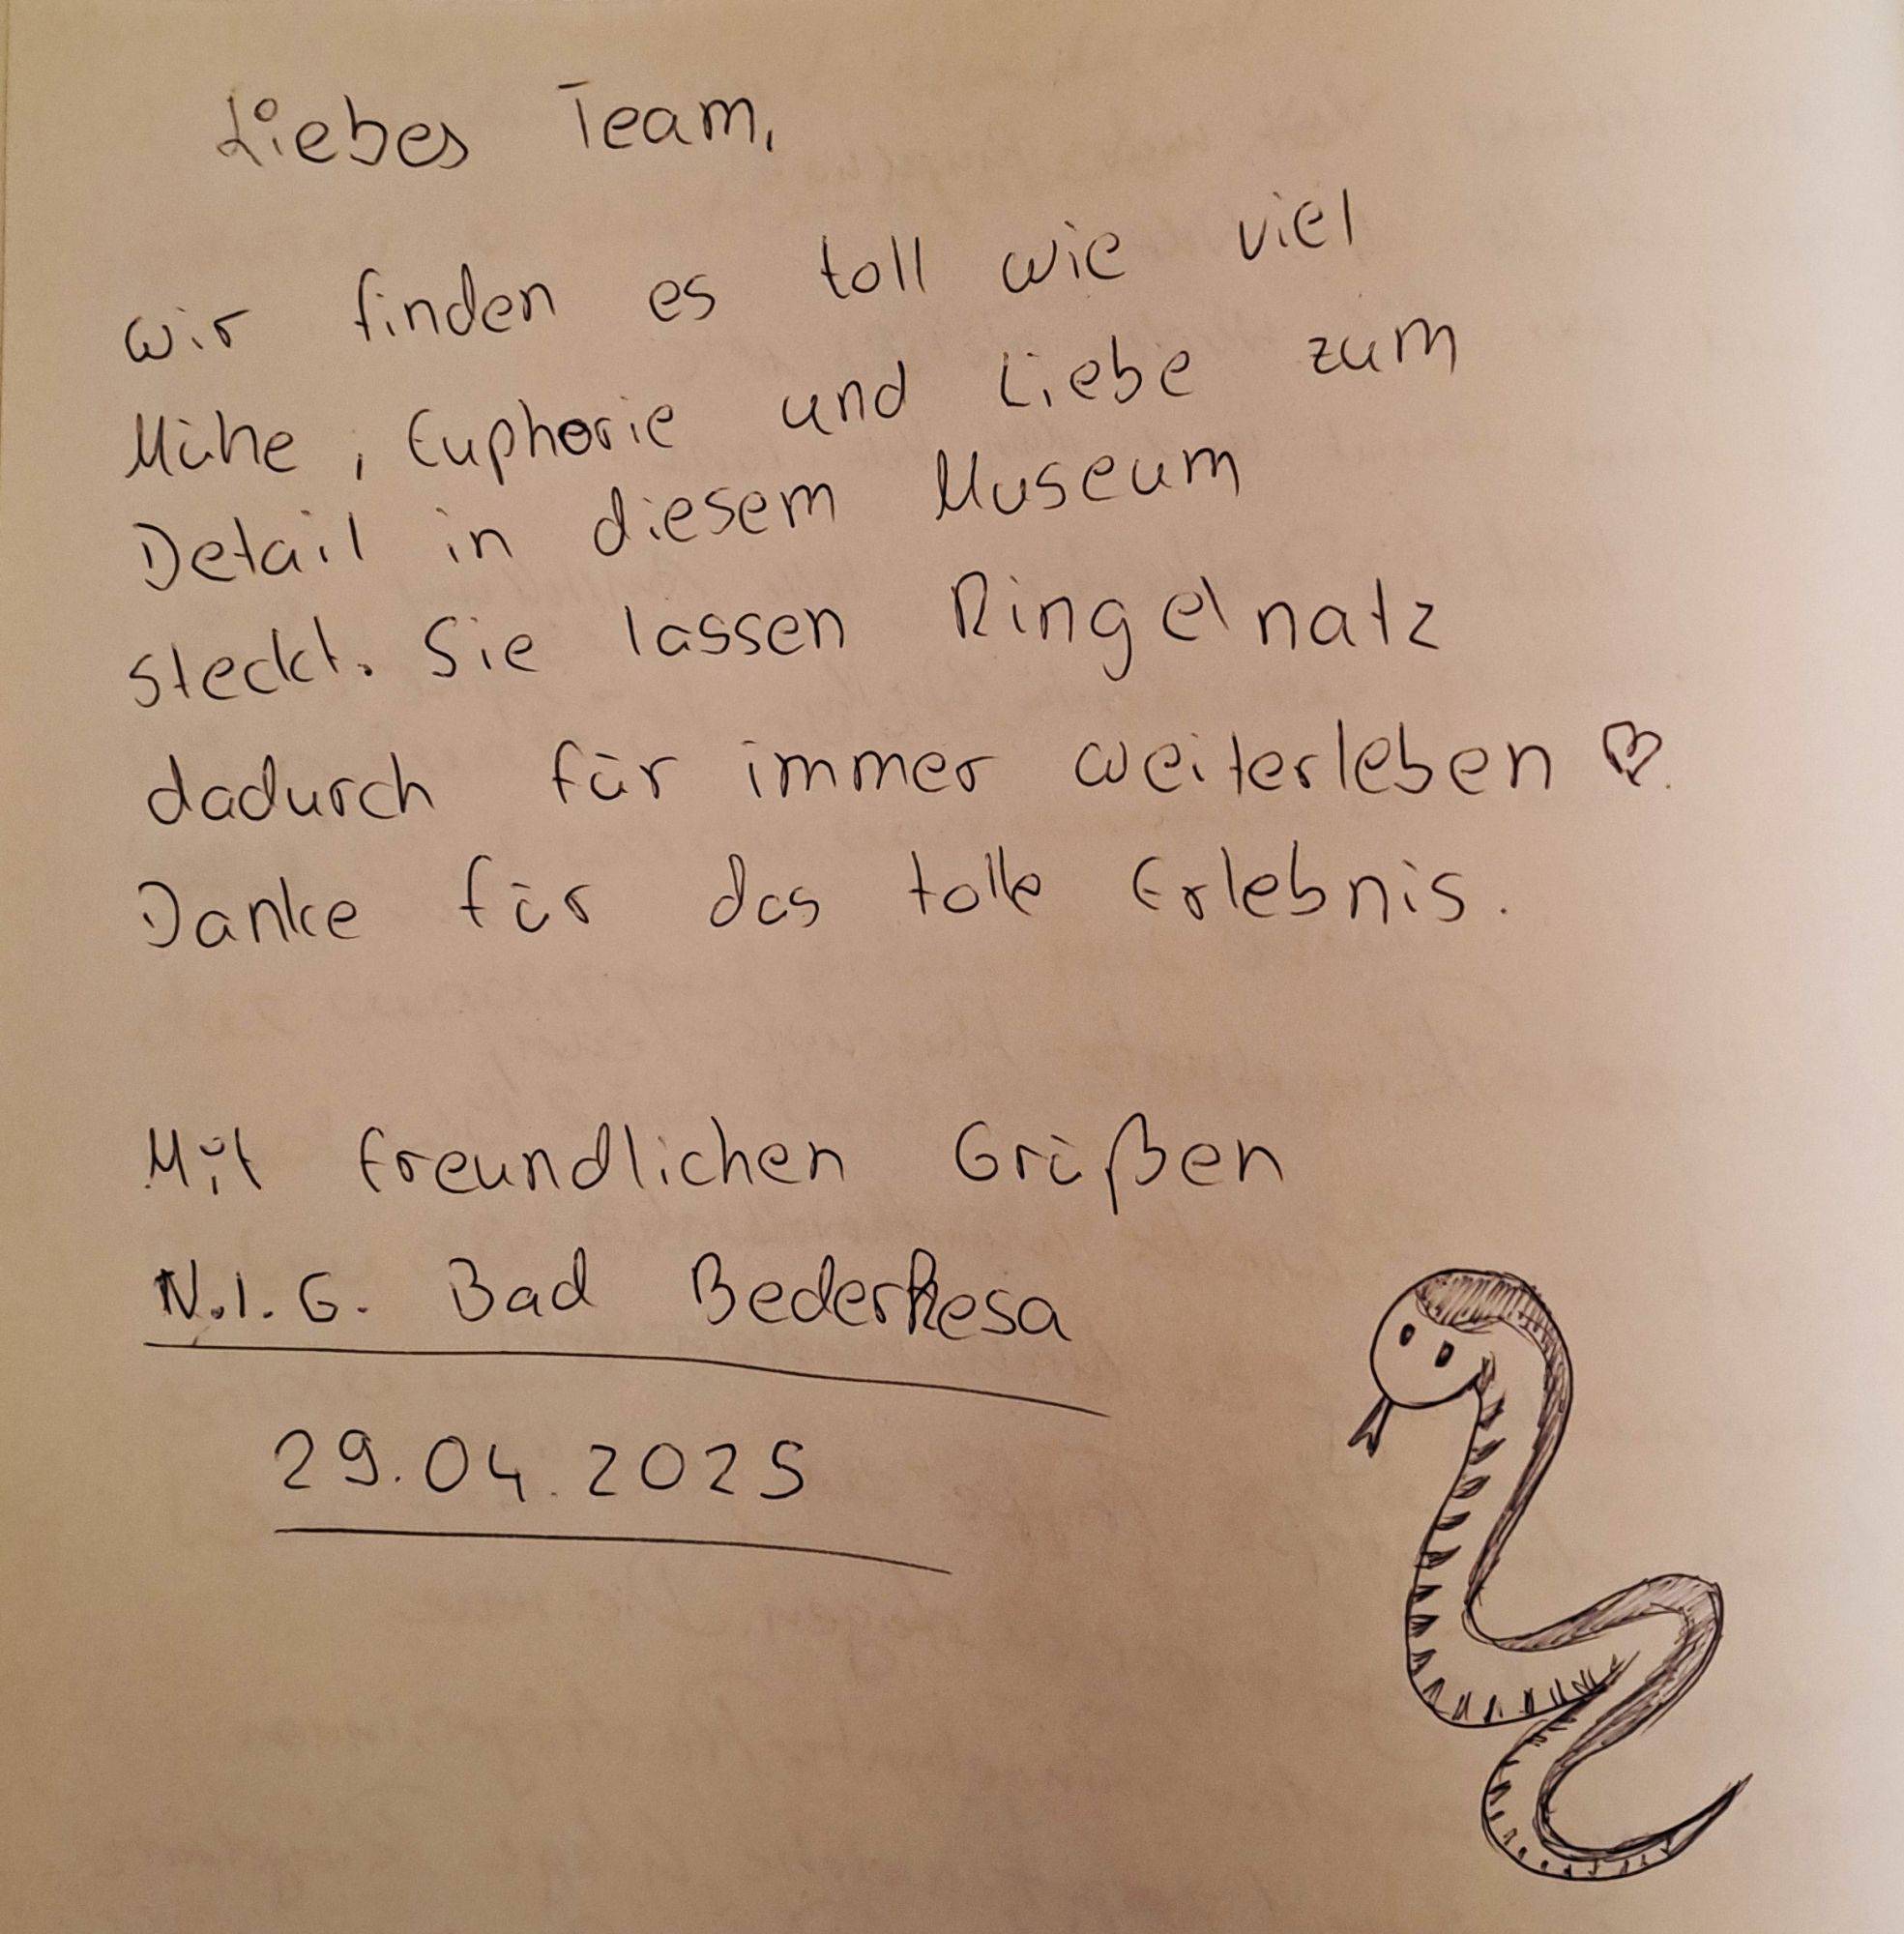 Liebes Team,
wir finden es toll wie viel
Mühe, Euphorie und Liebe zum
Detail in diesem Museum
steckt. Sie lassen Ringelnatz
dadurch für immer weiterleben ♡.
Danke für das tolle Erlebnis.
Mit freundlichen Grüßen
N.I.G. Bad Bederkesa
29.04.2025